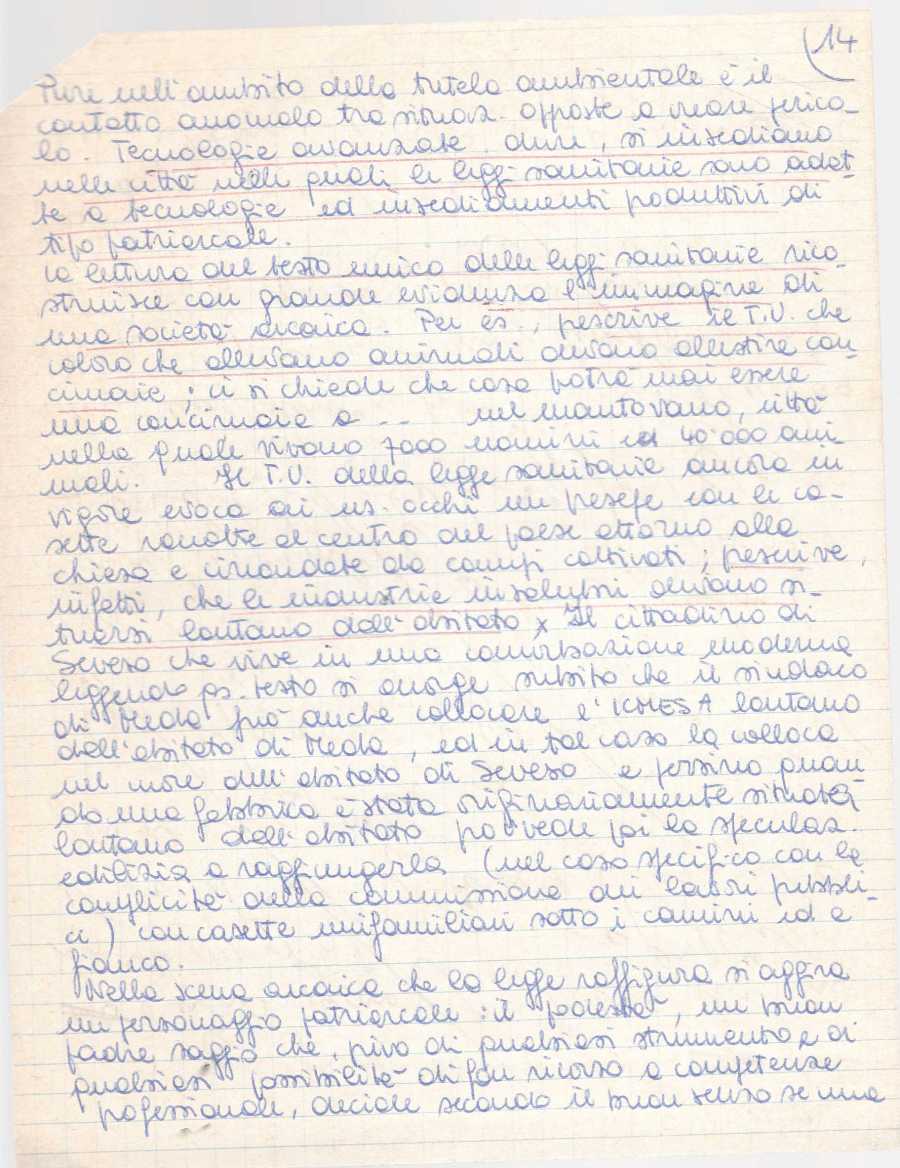 14
Pure nell'ambito della tutela ambientale è il
contatto anomalo tra situaz. opposte a creare perico-
lo. Tecnologie avanzate dure, si insediano
nelle città nelle quali le leggi sanitarie sono adat-
te a tecnologie ed insediamenti produttivi di
tipo patriarcale.
La lettura del testo unico delle leggi sanitarie rico-
struisce con grande evidenza l'immagine di
una società arcaica. Per es., prescrive il T.U. che
coloro che allevano animali devono allestire con-
cimaie; ci si chiede che cosa potrà mai essere
una concimaia a .. nel mantovano, città
nella quale vivono 7000 uomini ed 40.000 ani-
mali. Il T.U. della legge sanitarie ancora in
vigore evoca ai ns. occhi un presepe con le ca-
sette raccolte al centro del paese attorno alla
chiesa e circondate da campi coltivati; prescrive,
infatti, che le industrie insalubri devono si-
tuarsi lontano dall'abitato x Il cittadino di
Seveso che vive in una conurbazione moderna
leggendo qs. testo si accorge subito che il sindaco
di Meda può anche collocare l'ICMESA lontano
dall'abitato di Meda, ed in tal caso la colloca
nel cuore dell'abitato di Seveso e persino quan
do una fabbrica è stata originariamente situata
lontano dall'abitato provvede poi la speculaz.
edilizia a raggiungerla (nel caso specifico con la
complicità della commissione dei lavori pubbli-
ci) con casette unifamiliari sotto i camini ed a
fianco.
Nella scena arcaica che la legge raffigura si aggira
un personaggio patriarcale: il podestà, un buon
padre saggio che, privo di qualsiasi strumento e di
qualsiasi possibilità di far ricorso a competenze
professionali, decide secondo il buon senso se una